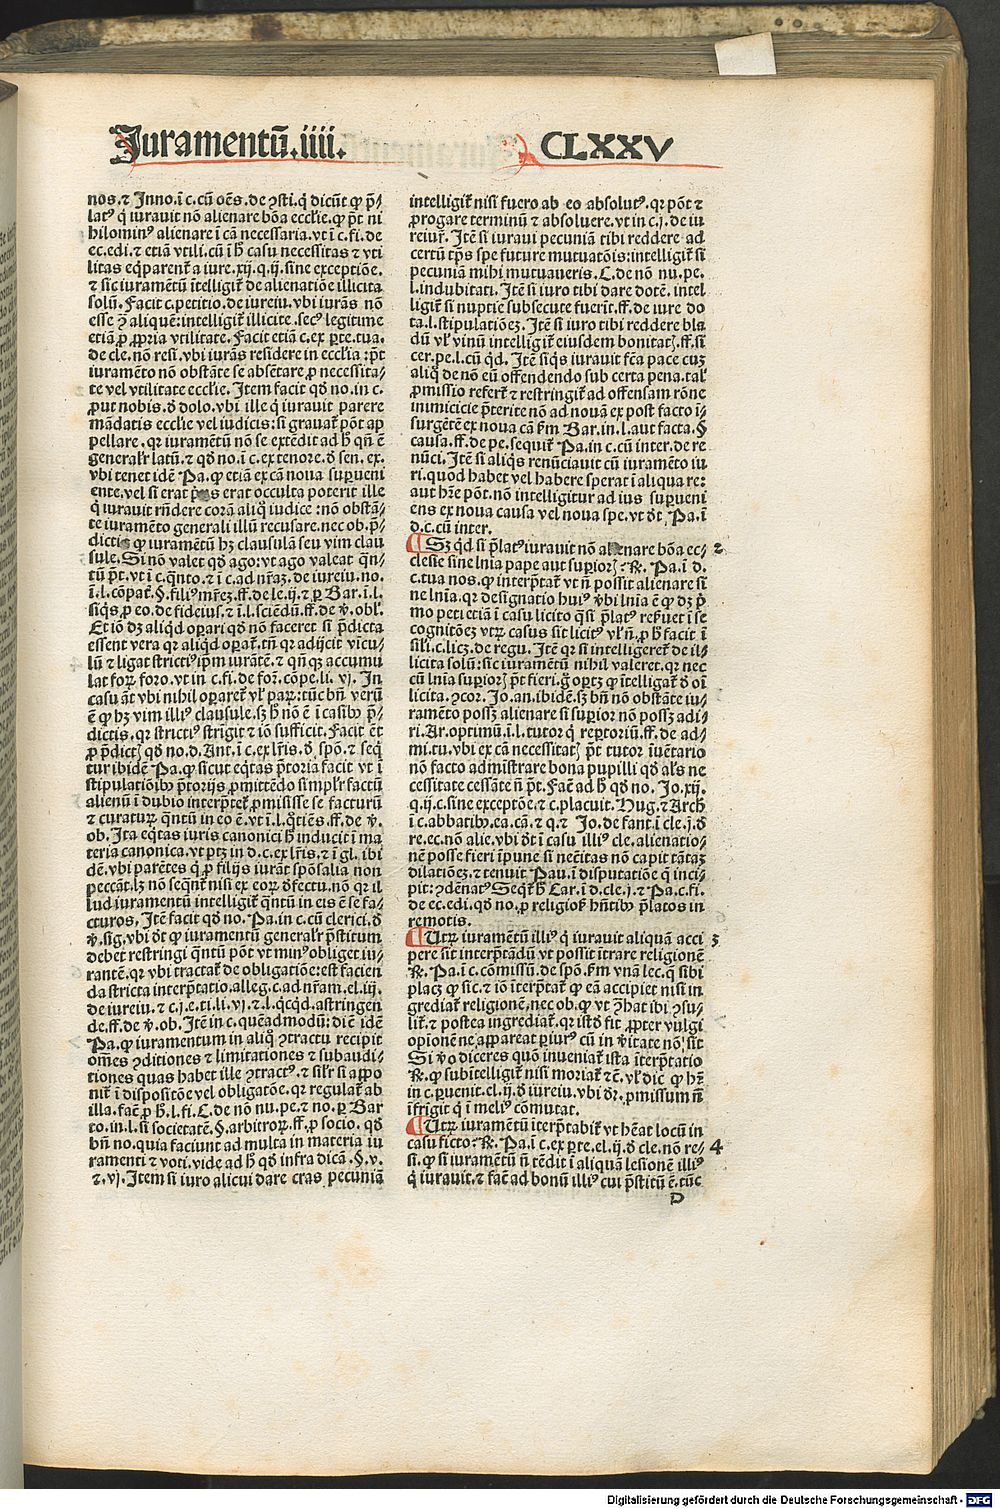 Juramentū.iiii.
CLXXV
nos.⁊ Inno.ī c.cū oēs.de ꝯsti.q̇ dicūt ꝙ p̄/
latꝰ q̇ iuravit nō alienare bōa ecclie.ꝙ pōt ni
hilominꝰ alienare ī cā necessaria.vt ī c.fi.de
ec.edi.⁊ etiā vtili.cū ī ħ casu necessitas ⁊ vti
litas eq̄parent᷑ a iure.xij.q.ij.sine exceptiōe.
⁊ sic iuramētū ītelligit᷑ de alienatiōe illicita
solū. Facit c.petitio.de iureiu.vbi iurās nō
esse ꝯ̄ aliquē:intelligit᷑ illicite.secꝰ legitime
etiā ꝓ ꝓpria vtilitate. Facit etiā c.ex ꝑte.tua.
de cle.nō resi.vbi iurās residere in ecclīa:pōt
iuramēto nō obstāte se absētare ꝓ necessita/
te vel vtilitate ecclie. Item facit qđ no.in c.
ꝓut nobis.đ dolo.vbi ille q̇ iuravit parere
mādatis ecclie vel iudicis:si gravat᷑ pōt ap
pellare.qꝛ iuramētū nō se extēdit ad ħ qn̄ ē
generalr̄ latū.⁊ qđ no.ī c.ex tenore.đ sen.ex.
vbi tenet idē Pa.ꝙ etiā ex cā nova suꝑveni
ente.vel si erat erat occulta poterit ille
q̇ iuravit rn̄dere corā aliq̊ iudice :nō obstā/
te iuramēto generali illū recusare.nec ob.p̄/
dictis ꝙ iuramētū hꝫ clausulā seu vim clau
sule. Si nō valet qđ ago:vt ago valeat qn̄/
tū pōt.vt ī c.qn̄to.⁊ ī c.ad nr̄aꝫ.de iureiu.no.
ī.l.cōpat᷑.§.filiꝰ mr̄eꝫ.ff.de le.ij.⁊ ꝑ Bar.ī.l.
siq̇s.ꝓ eo.de fideius.⁊ ī.l.sciēdū.ff.de v̄.obl᷑.
Et iō dꝫ aliq̇d oꝑari qđ nō faceret si p̄dicta
essent vera qꝛ aliq̇d oꝑat᷑.tn̄ qꝛ adijcit vicu/
lū ⁊ ligat strictiꝰ ip̄m iurātē.⁊ qn̄qꝫ accumu
lat foꝝ foro.vt in c.fi.de foꝝ.cōpe.li.vj. In
casu āt vbi nihil oꝑaret᷑ vl᷑ paꝝ:tūc bn̄ verū
ē ꝙ hꝫ vim illiꝰ clausule.sꝫ ħ nō ē ī casibꝰ p̄/
dictis.qꝛ strictiꝰ strigit ⁊ iō sufficit. Facit ēt
ꝓ p̄dictꝭ qđ no.d.Ant.ī c.ex lr̄is.đ spō.⁊ seq̄
tur ibidē Pa.ꝙ sicut eq̄tas p̄toria facit vt ī
stipulatiōibꝰ p̄torijs ꝓmittēdo simpl᷑r factū
alienū ī dubio interp̄tet᷑ ꝓmisisse se facturū
⁊ curaturū qn̄tū in eo ē.vt ī.l.q̊tiēs.ff.de v̄.
ob. Ita eq̄tas iuris canonici ħ inducit ī ma
teria canonica.vt ptꝫ in d.c.ex lr̄is.⁊ ī gl. ibi
dē.vbi parētes q̇ ꝓ filijs iurāt spōsalia non
peccāt.lꝫ nō seq̄nt᷑ nisi ex eoꝝ đfectu.nō qꝛ il
lud iuramentū intelligit᷑ qn̄tū in eis ē se fa/
cturos. Itē facit qđ no. Pa.in c.cū clerici.đ
v̄.sig.vbi đt ꝙ iuramentū general᷑r p̄stitum
debet restringi qn̄tū pōt vt minꝰ obliget iu/
rantē.qꝛ vbi tractat᷑ de obligatiōe:est facien
da stricta interp̄tatio.alleg.c.ad nr̄am.el.iij.
de iureiu.⁊ c.j.e.ti.li.vj.⁊.l.q̇cq̇d.astringen
de.ff.de v̄.ob. Itē in c.quēadmodū: dīc idē
Pa.ꝙ iuramentum in aliq̊ ꝯtractu recipit
om̄es ꝯditiones ⁊ limitationes ⁊ subaudi/
tiones quas habet ille ꝯtractꝰ.⁊ sil᷑r si appo
nit᷑ ī dispositōe vel obligatōe.qꝛ regulat᷑ ab
illa. facit ꝓ ħ.l.fi. C.de nō nu.pe.⁊ no.ꝑ Bar
to.in.l.si societatē.§.arbitroꝝ.ff.ꝓ socio. qđ
bn̄ no.quia faciunt ad multa in materia iu
ramenti ⁊ voti.vide ad ħ qđ infra dicā.§.v.
⁊.vj.Item si iuro alicui dare cras pecuniā
intelligit᷑ nisi fuero ab eo absolutꝰ.qꝛ pōt ⁊
ꝓrogare terminū ⁊ absoluere.vt in c.j.de iu
reiur᷑. Itē si iuravi pecuniā tibi reddere ad
certū tp̄s spe future mutuatōis:intelligit᷑ si
pecuniā mihi mutuaveris. C.de nō nu.pe.
l.indubitati. Itē si iuro tibi dare dotē. intel
ligit᷑ si nuptie subsecute fuerīt.ff.de iure do
ta.l.stipulatiōeꝫ. Itē si iuro tibi reddere bla
dū vl᷑ vinū intelligit᷑ eiusdem bonitatꝭ.ff.si
cer.pe.l.cū q̇d. Itē siq̇s iuravit fc̄a pace cuꝫ
aliq̊ de nō eū offendendo sub certa pena.tal᷑
ꝓmissio refert᷑ ⁊ restringit᷑ ad offensam rōne
inimicicie p̄terite nō ad novā ex post facto ī/
surgētē ex nova cā fm̄ Bar.in.l.aut facta.§
causa.ff.de pe.sequit᷑ Pa.in c.cū inter.de re
nūci. Itē si aliq̇s renūciavit cū iuramēto iu
ri.quod habet vel habere sperat ī aliqua re:
aut hr̄e pōt.nō intelligitur ad ius suꝑveni
ens ex noua causa vel noua spe.vt đt Pa.ī
d.c.cū inter.
¶ Sꝫ q̇d si p̄latꝰ iuravit nō alienare bōa ec/ 2
clesie sine lnīa pape aut suꝑiorꝭ? ℞. Pa.ī d.
c.tua nos.ꝙ interp̄tat᷑ vt n̄ possit alienare si
ne lnīa.qꝛ designatio huiꝰ v̄bi lnīa ē ꝙ dꝫ p̄/
mo peti etiā ī casu licito q̄si p̄latꝰ reſvet ī se
cognitōeꝫ vtꝝ casus sit licitꝰ vl᷑ n̄.ꝓ ħ facit ī
sili.c.licꝫ.de regu. Itē qꝛ si intelligeret᷑ de il/
licita solū:sic iuramētū nihil valeret.qꝛ nec
cū lnīa suꝑiorꝭ pōt fieri.ḡ oꝑtꝫ ꝙ ītelligat᷑ đ oī
licita.ꝯcor. Jo.an.ibidē.sꝫ bn̄ nō obstāte iu/
ramēto possꝫ alienare si suꝑior nō possꝫ adi/
ri. Ar.optimū.ī.l.tutor q̇ reꝑtoriū.ff.de ad/
mi.tu.vbi ex cā necessitatꝭ pōt tutor īuētario
nō facto admīstrare bona pupilli qđ al᷑s ne
cessitate cessāte n̄ pōt. Facit ad ħ qđ no. Jo.xij.
q.ij.c.sine exceptōe.⁊ c.placuit. Hug.⁊ Arch
ī c.abbatibꝰ.ea.cā.⁊ q.⁊ Jo.de fant.ī cle.j.đ
re.ec.nō alie.vbi đt ī casu illiꝰ cle.alienatio/
nē posse fieri īpune si nec̄itas nō capit tātaꝫ
dilatiōeꝫ.⁊ tenuit Pau.ī disputatiōe q̄ inci/
pit:ꝯdēnatꝰ Seqt᷑ ħ Car.ī d.cle.j.⁊ Pa.c.fi.
de ec.edi.qđ no.ꝓ religiosꝭ hn̄tibꝰ p̄latos in
remotis.
¶ Utꝝ iuramētū illiꝰ q̇ iuravit aliquā acci 3
pere sit interp̄tādū vt possit ītrare religionē
℞. Pa.ī c.cōmissū.de spō.fm̄ vnā lec.q̄ sibi
placꝫ ꝙ sic.⁊ iō īterp̄tat᷑ ꝙ eā accipiet nisi in
grediat᷑ religionē.nec ob.ꝙ vt ꝯ̄hat ibi ꝯsu/
lit᷑.⁊ postea ingrediat᷑.qꝛ istđ fit ꝓpter vulgi
opionē ne appareat ꝑiurꝰ cū in v̄itate nō sit
Si v̄o diceres quō inveniat᷑ ista īterp̄tatio
℞.ꝙ subītelligit᷑ nisi moriat᷑ ⁊c̄.vl᷑ dic ꝙ hr̄
in c.ꝑuenit.el.ij.đ iureiu.vbi dr̄.ꝓmissum n̄
īfrīgit q̇ ī meliꝰ cōmutat.
¶ Utꝝ iuramētū īterp̄tabit᷑ vt hēat locū in
casu ficto? ℞. Pa.ī c.ex ꝑte.el.ij.đ cle.nō re/ 4
si.ꝙ si iuramētū n̄ tēdit ī aliquā lesionē illiꝰ
q̇ iuravit.⁊ fac̄ ad bonū illiꝰ cui p̄stitū ē.tūc
D
Digitalisierung gefördert durch die Deutsche Forschungsgemeinschaft - DFG